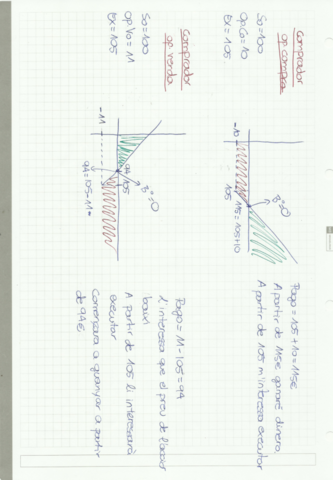 Comprador
op. compra
So=100
OpCo=10
Ex=105
-10
105
115=105+10
Bº=0
Pago=105+10=115€
A partir de 115€ ganaré dinero
A partir de 105 m'interessa executar
Comprador
op. venda
So=100
OpVo=11
Ex=105
-11
94
105
Bº=0
94=105-11
Pago=11-105=94
L'interessa que el preu de l'acció
baixi
A partir de 105 li interessarà
executar
Començarà a guanyar a partir
de 94€